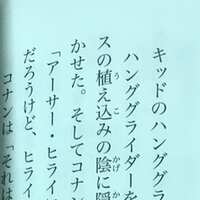 キッドのハンググラ
ハンググライダーを
う こ かげ
スの植え込みの陰に隠
かせた。そしてコナン
「アーサー・ヒライ
だろうけど、ヒライ
コナンは「それは